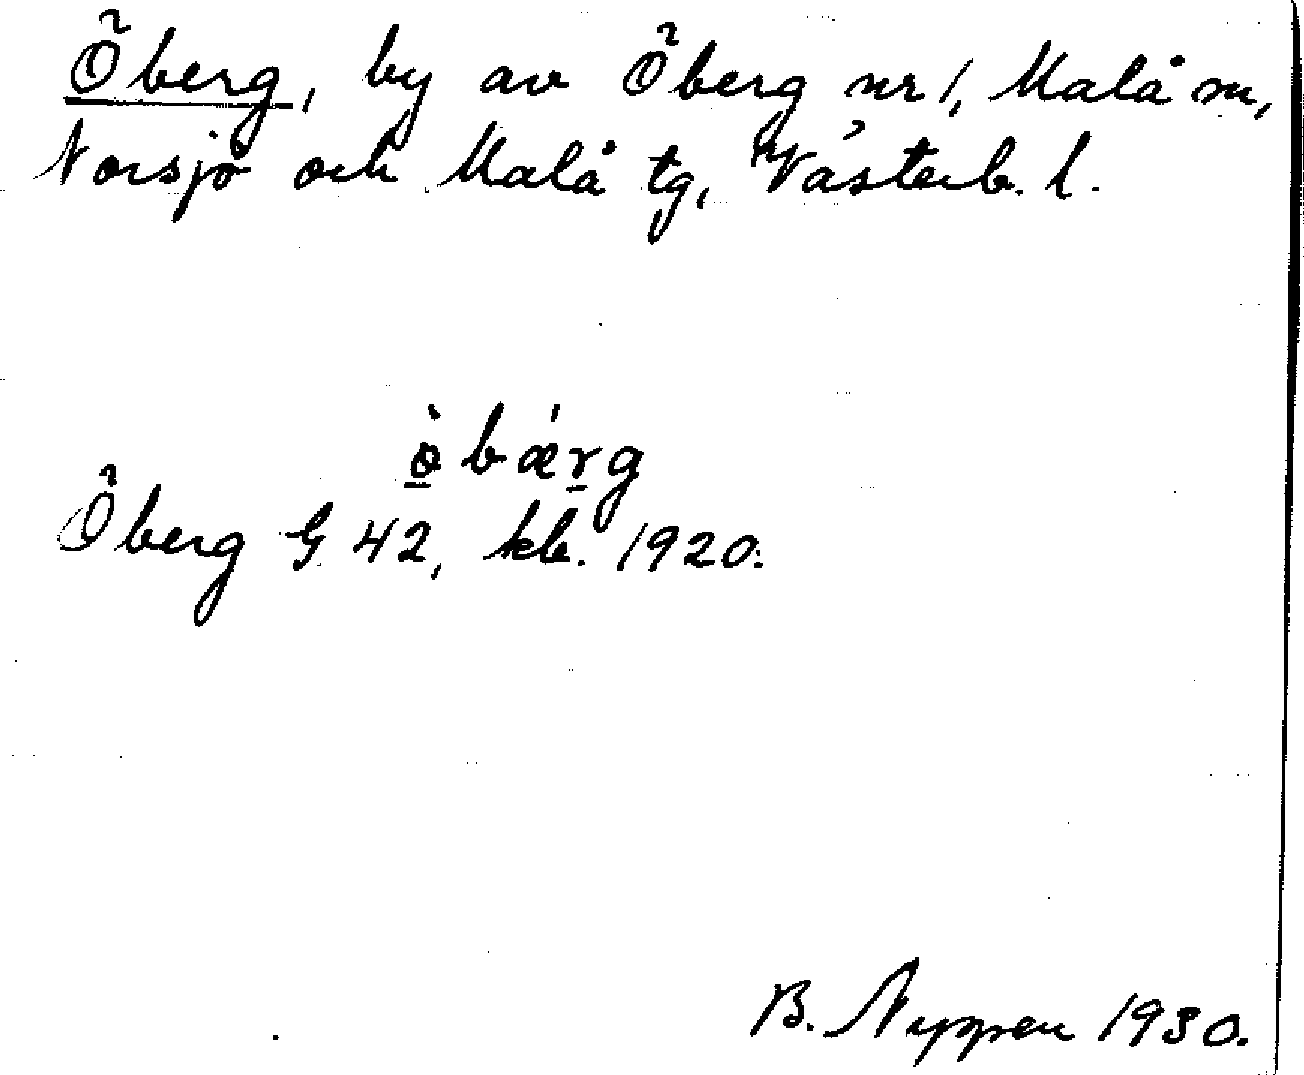 Öberg, by av Öberg nr 1, Malå sn,
Norsjö och Malå tg, Västerb. l.
ö̀bǽrg
Öberg G 42, kb. 1920.
B. 1930.